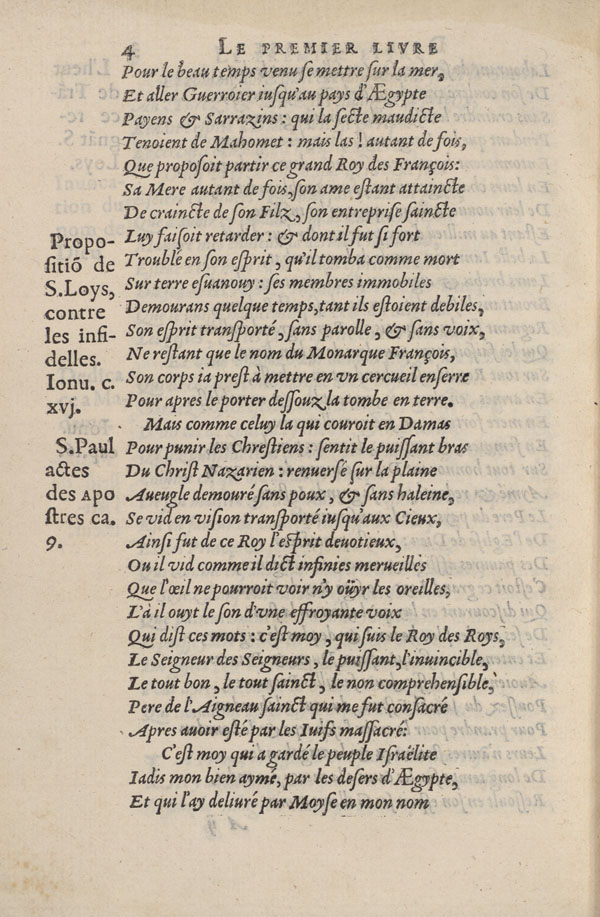 4 LE PREMIER LIVRE
Pour le beau temps venu se mettre sur la mer,
Et aller Guerroier iusqu'au pays d'Ægypte
Payens & Sarrazins : qui la secte maudicte
Tenoient de Mahomet : mais las ! autant de fois,
Que proposoit partir ce grand Roy des François:
Sa Mere autant de fois, son ame estant attaincte
De craincte de son Filz, son entreprise saincte
Luy faisoit retarder : & dont il fut si fort
Troublé en son esprit, qu'il tomba comme mort
Sur terre esuanouy : ses membres immobiles
Demourans quelque temps, tant ils estoient debiles,
Son esprit transporté, sans parolle, & sans voix,
Ne restant que le nom du Monarque François,
Son corps ia prest à mettre en vn cercueil enserre
Pour apres le porter dessouz la tombe en terre.
Mais comme celuy la qui couroit en Damas
Pour punir les Chrestiens : sentit le puissant bras
Du Christ Nazarien : renuersé sur la plaine
Aueugle demouré sans poux, & sans haleine,
Se vid en vision transporté iusqu'aux Cieux,
Ainsi fut de ce Roy l'esprit deuotieux,
Ou il vid comme il dict infinies merueilles
Que l'œil ne pourroit voir n'y oüyr les oreilles,
L'à il ouyt le son d'vne effroyante voix
Qui dist ces mots : c'est moy, qui suis le Roy des Roys,
Le Seigneur des Seigneurs, le puissant, l'inuincible,
Le tout bon, le tout sainct, le non comprehensible,
Pere de l'Aigneau sainct qui me fut consacré
Apres auoir esté par les Iuifs massacré:
C'est moy qui a gardé le peuple Israëlite
Iadis mon bien aymé, par les desers d'Ægypte,
Et qui l'ay deliuré par Moyse en mon nom
Propo-
sitiō de
S. Loys,
contre
les infi-
delles.
Ionu. c.
xvj.
S. Paul
actes
des Apo
stres ca.
9.